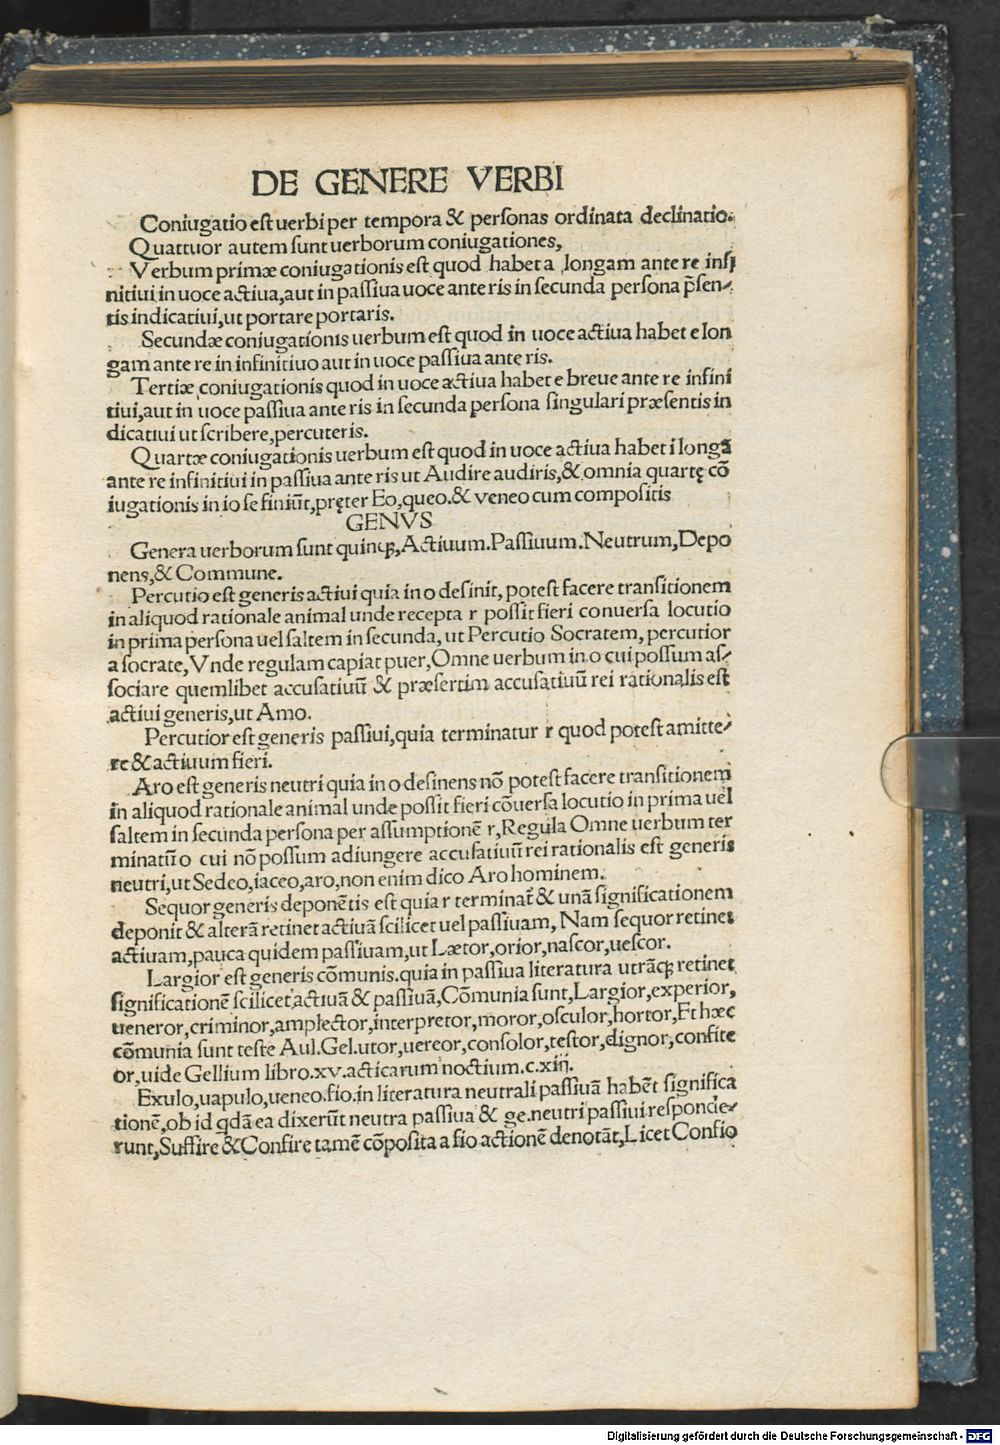 DE GENERE VERBI
Coniugatio eſt uerbi per tempora & perſonas ordinata declinatio.
Quattuor autem ſunt uerborum coniugationes,
Verbum primæ coniugationis eſt quod habet a longam ante re infi
nitiui in uoce actiua,aut in paſſiua uoce ante ris in ſecunda perſona p̃ſen⸗
tis indicatiui,ut portare portaris.
Secundæ coniugationis uerbum eſt quod in uoce actiua habet e lon
gam ante re in infinitiuo aut in uoce paſſiua ante ris.
Tertiæ coniugationis quod in uoce actiua habet e breue ante re infini
tiui,aut in uoce paſſiua ante ris in ſecunda perſona ſingulari præſentis in
dicatiui ut ſcribere,percuteris.
Quartæ coniugationis uerbum eſt quod in uoce actiua habet i longã
ante re infinitiui in paſſiua ante ris ut Audire audiris,& omnia quartę cõ
iugationis in io ſe finiũt,pręter Eo,queo.& veneo cum compoſitis
GENVS
Genera uerborum ſunt quinqꝫ,Actiuum.Paſſiuum.Neutrum,Depo
nens,& Commune.
Percutio eſt generis actiui quia in o deſinit, poteſt facere tranſitionem
in aliquod rationale animal unde recepta r poſſit fieri conuerſa locutio
in prima perſona uel ſaltem in ſecunda, ut Percutio Socratem, percutior
a ſocrate,Vnde regulam capiat puer,Omne uerbum in o cui poſſum aſ⸗
ſociare quemlibet accuſatiuũ & præſertim accuſatiuũ rei rationalis eſt
actiui generis,ut Amo.
Percutior eſt generis paſſiui,quia terminatur r quod poteſt amitte⸗
re & actiuum fieri.
Aro eſt generis neutri quia in o deſinens nõ poteſt facere tranſitionem
in aliquod rationale animal unde poſſit fieri cõuerſa locutio in prima uel
ſaltem in ſecunda perſona per aſſumptionẽ r,Regula Omne uerbum ter
minatũ o cui nõ poſſum adiungere accuſatiuũ rei rationalis eſt generis
neutri,ut Sedeo,iaceo,aro,non enim dico Aro hominem.
Sequor generis deponẽtis eſt quia r terminat̃ & unã ſignificationem
deponit & alterã retinet actiuã ſcilicet uel paſſiuam, Nam ſequor retinet
actiuam,pauca quidem paſſiuam,ut Lætor,orior,naſcor,ueſcor.
Largior eſt generis cõmunis.quia in paſſiua literatura utrãqꝫ retinet
ſignificationẽ ſcilicet actiuã & paſſiuã,Cõmunia ſunt,Largior,experior,
ueneror,criminor,amplector,interpretor,moror,oſculor,hortor,Et hæc
cõmunia ſunt teſte Aul.Gel.utor,uereor,conſolor,teſtor,dignor,confite
or,uide Gellium libro.xv.acticarum noctium.c.xiij.
Exulo,uapulo,ueneo.fio.in literatura neutrali paſſiuã habẽt ſignifica
tionẽ,ob id qdã ea dixerũt neutra paſſiua & ge.neutri paſſiui reſponde⸗
runt,Suffire & Confire tamẽ cõpoſita a fio actionẽ denotãt,Licet Confio
Digitalisierung gefördert durch die Deutsche Forschungsgemeinschaft - DFG